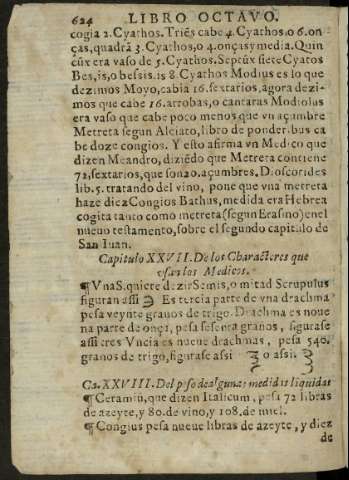 624 LIBRO OCTAVO.
cogia 2. Cyathos. Triẽs cabe 4. Cyathos, o 6. on
ças, quadrã 3. Cyathos, o 4. onças y media. Quin
cũx era vaso de 5. Cyathos. Septũx siete Cyatos
Bes, is, o bessis. is 8 Cyathos Modius es lo que
dezimos Moyo, cabia 16. sextarios, agora dezi-
mos que cabe 16. arrobas, o cantaras Modiolus
era vaso que cabe poco menos que vn açumbre
Metreta segun Alciato, libro de ponderibus ca
be doze congios. Y esto afirma vn Medico que
dizen Meandro, diziẽdo que Metreta contiene
72, sextarios, que son 20. açumbres, Dioscorides
lib. 5. tratando del vino, pone que vna metreta
haze diez Congios Bathus, medida era Hebrea
cogita tanto como metreta (segun Erasmo) en el
nueuo testamento, sobre el segundo capitulo de
San Iuan.
Capitulo XXVII. De los Characteres que
vsan los Medicos.
¶ VnaS. quiere dezir Semis, o mitad Scrupulus
figuran assi Es tercia parte de vna drachma
pesa veynte granos de trigo. Drachma es noue
na parte de onça, pesa sesenta granos, figurase
assi tres Vncia es nueue drachmas, pesa 540.
granos de trigo, figurase assi ʒ o assi.
Ca. XXVIII. Del peso de algunas medidas liquidas
¶ Ceramiũ, que dizen Italicum, pesa 72 libras
de azeyte, y 80. de vino, y 108. de miel.
¶ Congius pesa nueue libras de azeyte, y diez
de